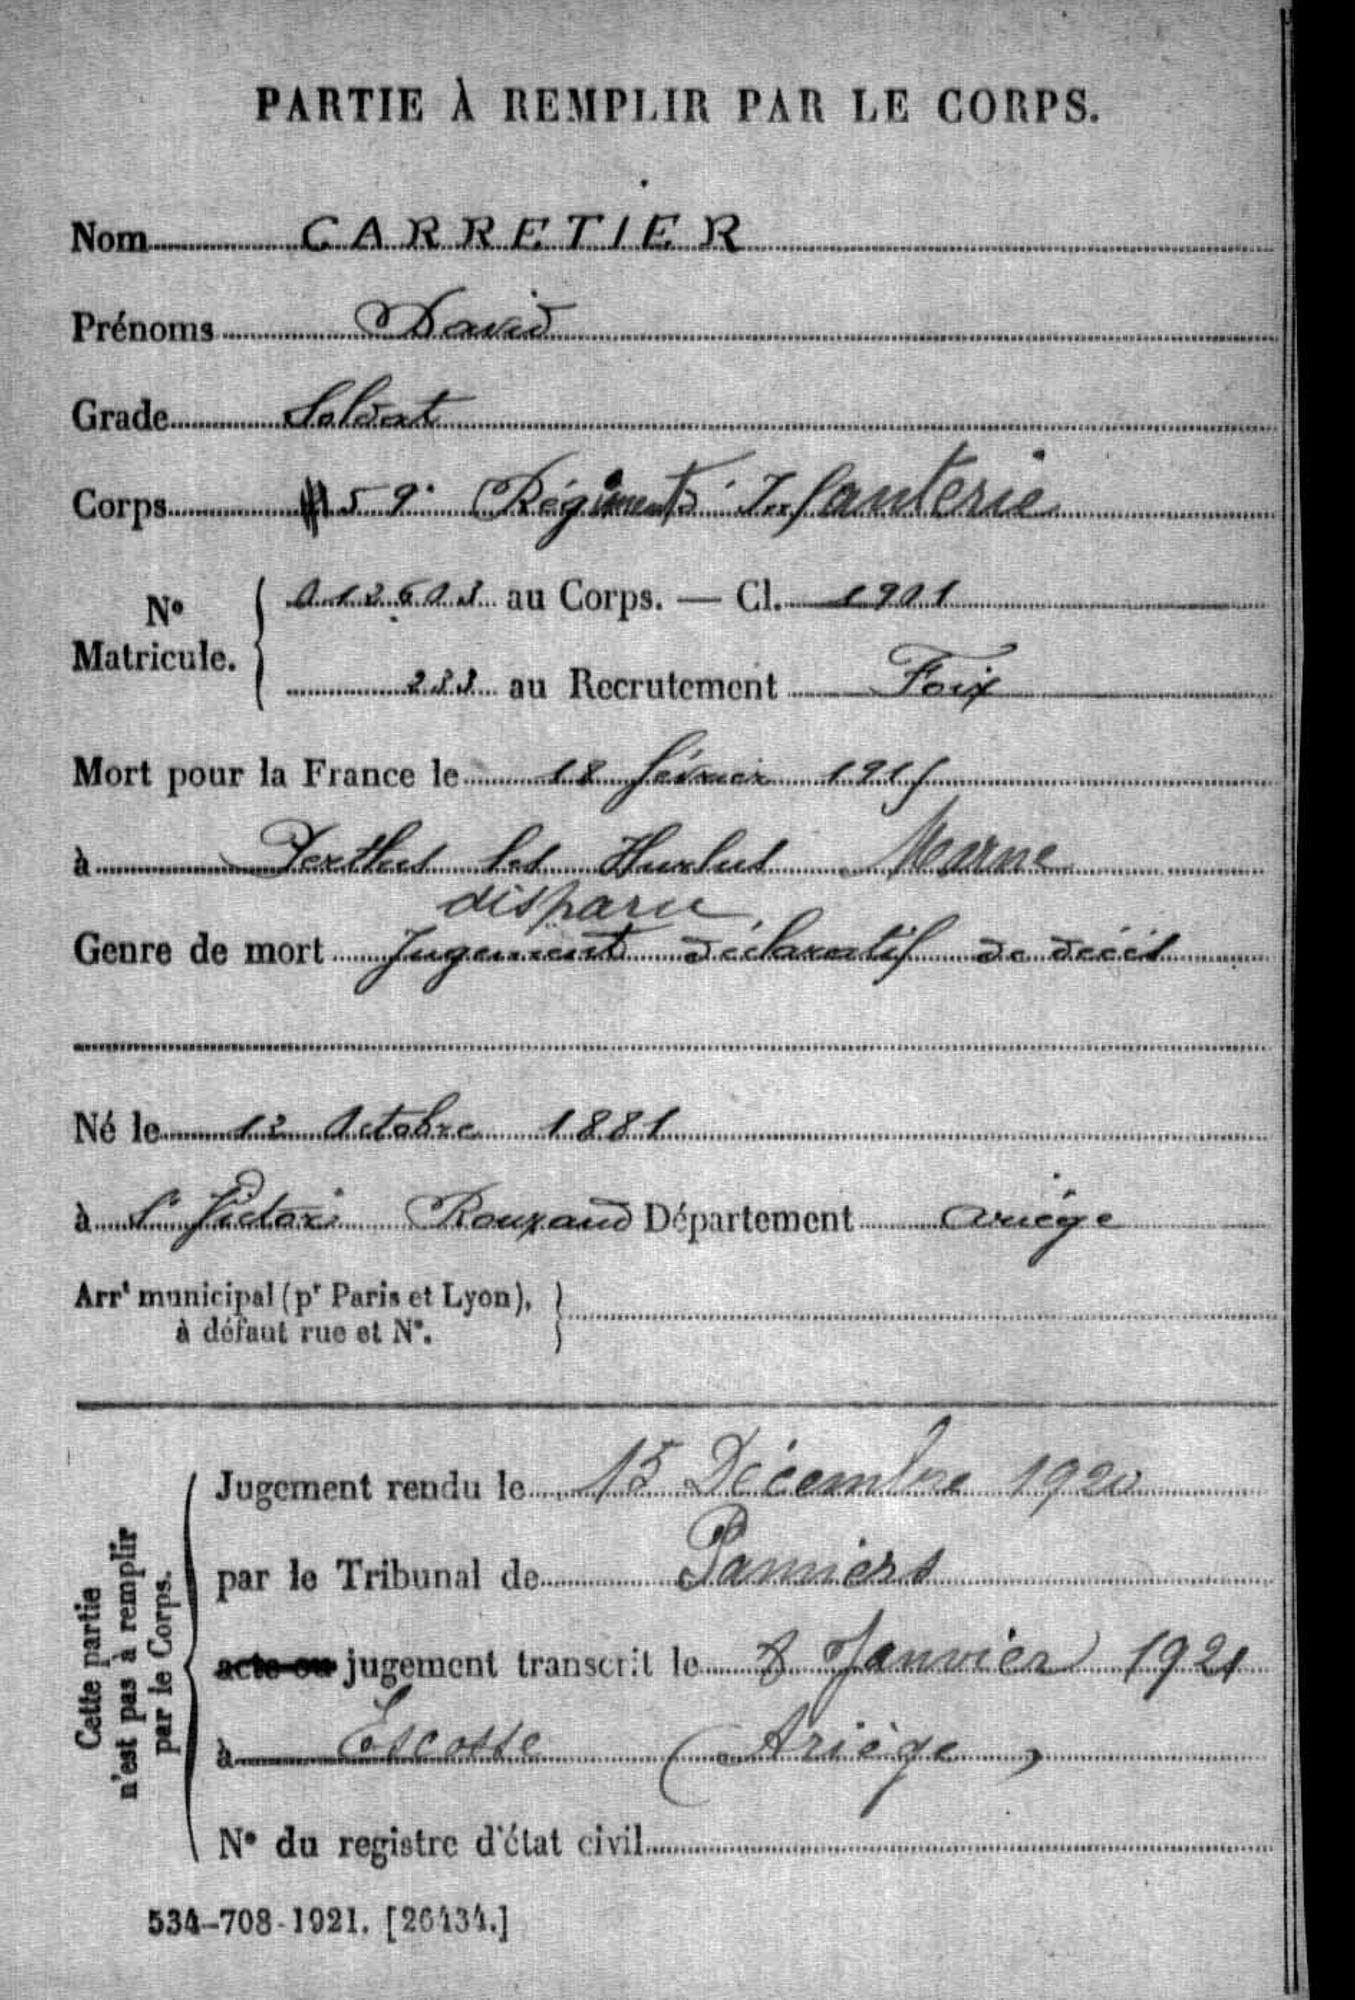 PARTIE À REMPLIR PAR LE CORPS.
Nom CARRETIER
Prénoms David
Grade Soldat
Corps 59e Régiment d'Infanterie
No Matricule. 012603 au Corps. — Cl. 1901
233 au Recrutement Foix
Mort pour la France le 18 février 1915
à Perthes les Hurlus Marne
disparu
Genre de mort Jugement déclaratif de décès
Né le 12 Octobre 1881
à St Victor Rouzaud Département Ariège
Arrt municipal (pr Paris et Lyon),
à défaut rue et No.
Cette partie
n'est pas à remplir
par le Corps.
Jugement rendu le 15 Décembre 1920
par le Tribunal de Pamiers
acte ou jugement transcrit le 8 Janvier 1921
à Escosse (Ariège)
No du registre d'état civil
534-708-1921. [26434.]